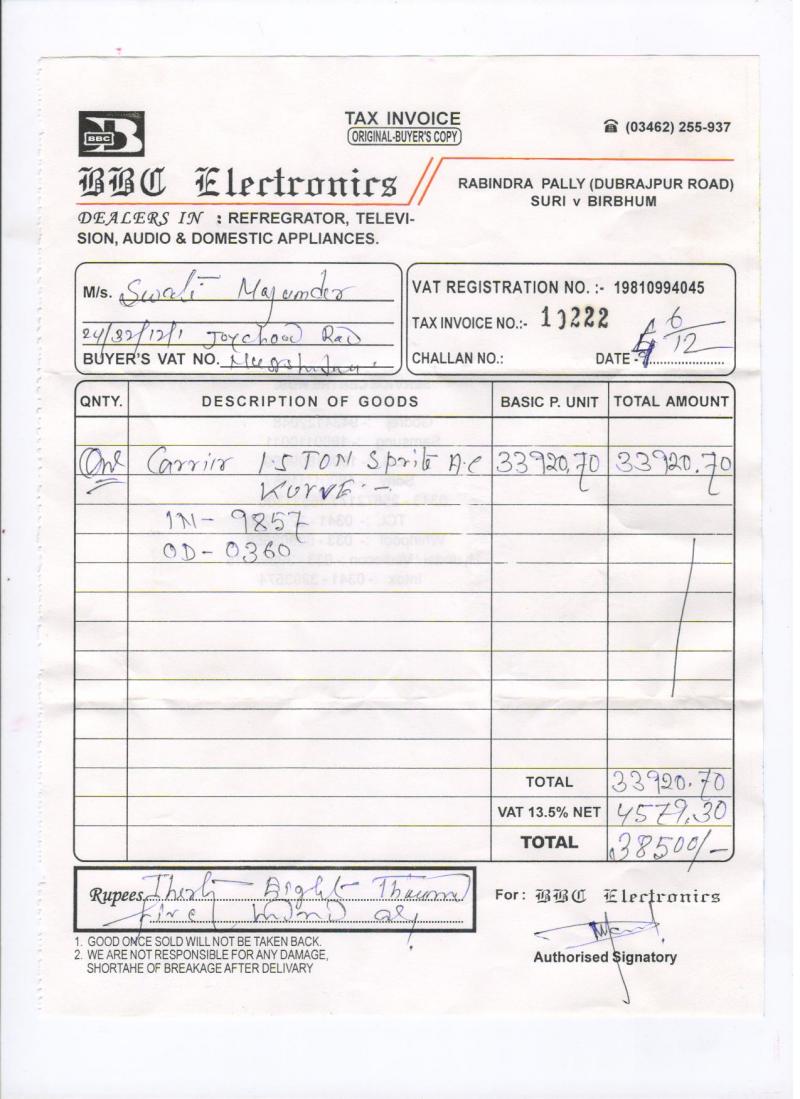 TAX INVOICE
ORIGINAL-BUYER'S COPY
(03462) 255-937
BBC
BBC Electronics
RABINDRA PALLY (DUBRAJPUR ROAD)
SURI v BIRBHUM
DEALERS IN : REFREGRATOR, TELEVI-
SION, AUDIO & DOMESTIC APPLIANCES.
M/s. Swati Majumder
24/32/12/1 Joychand Rad
BUYER'S VAT NO.
VAT REGISTRATION NO. :- 19810994045
TAX INVOICE NO.:- 10222
CHALLAN NO.: DATE - 6 12
QNTY. DESCRIPTION OF GOODS BASIC P. UNIT TOTAL AMOUNT
One Carrier 1.5 TON Sprite A.C 33920.70 33920.70
KURVE :-
IN - 9857
OD - 0360
TOTAL 33920.70
VAT 13.5% NET 4579.30
TOTAL 38500/-
Rupees Thirty Eight Thousand
five hundred only
For : BBC Electronics
Authorised Signatory
1. GOOD ONCE SOLD WILL NOT BE TAKEN BACK.
2. WE ARE NOT RESPONSIBLE FOR ANY DAMAGE,
SHORTAHE OF BREAKAGE AFTER DELIVARY